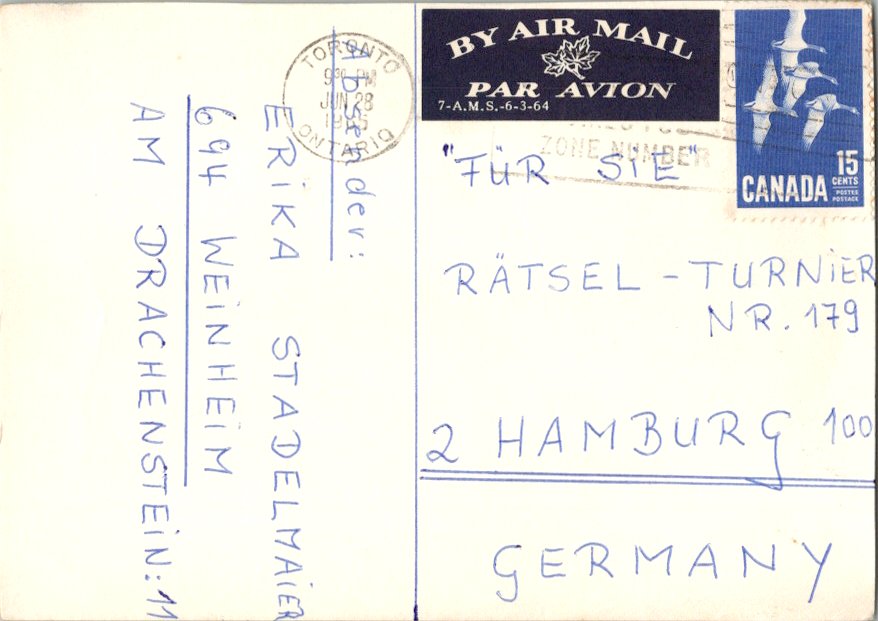 BY AIR MAIL
PAR AVION
7-A.M.S.-6-3-64
TORONTO
9³⁰ PM
JUN 28
ONTARIO
ZONE NUMBER
15
CENTS
CANADA
POSTES
POSTAGE
"FÜR SIE"
RÄTSEL-TURNIER
NR. 179
2 HAMBURG 100
GERMANY
Absender:
ERIKA STADELMAIER
694 WEINHEIM
AM DRACHENSTEIN: 11